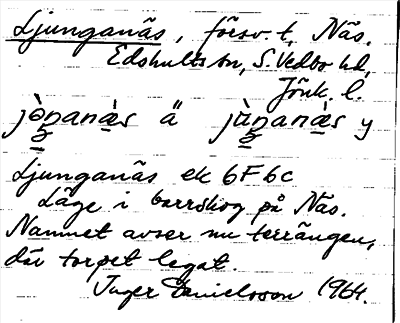 Ljunganäs, försv. t, Näs.
Edshults sn, S. Vedbo hd,
Jönk. l.
ä y
Ljunganäs ek 6F6c
Läge i barrskog på Näs.
Namnet avser nu terrängen,
där torpet legat.
Inger Danielsson 1964.